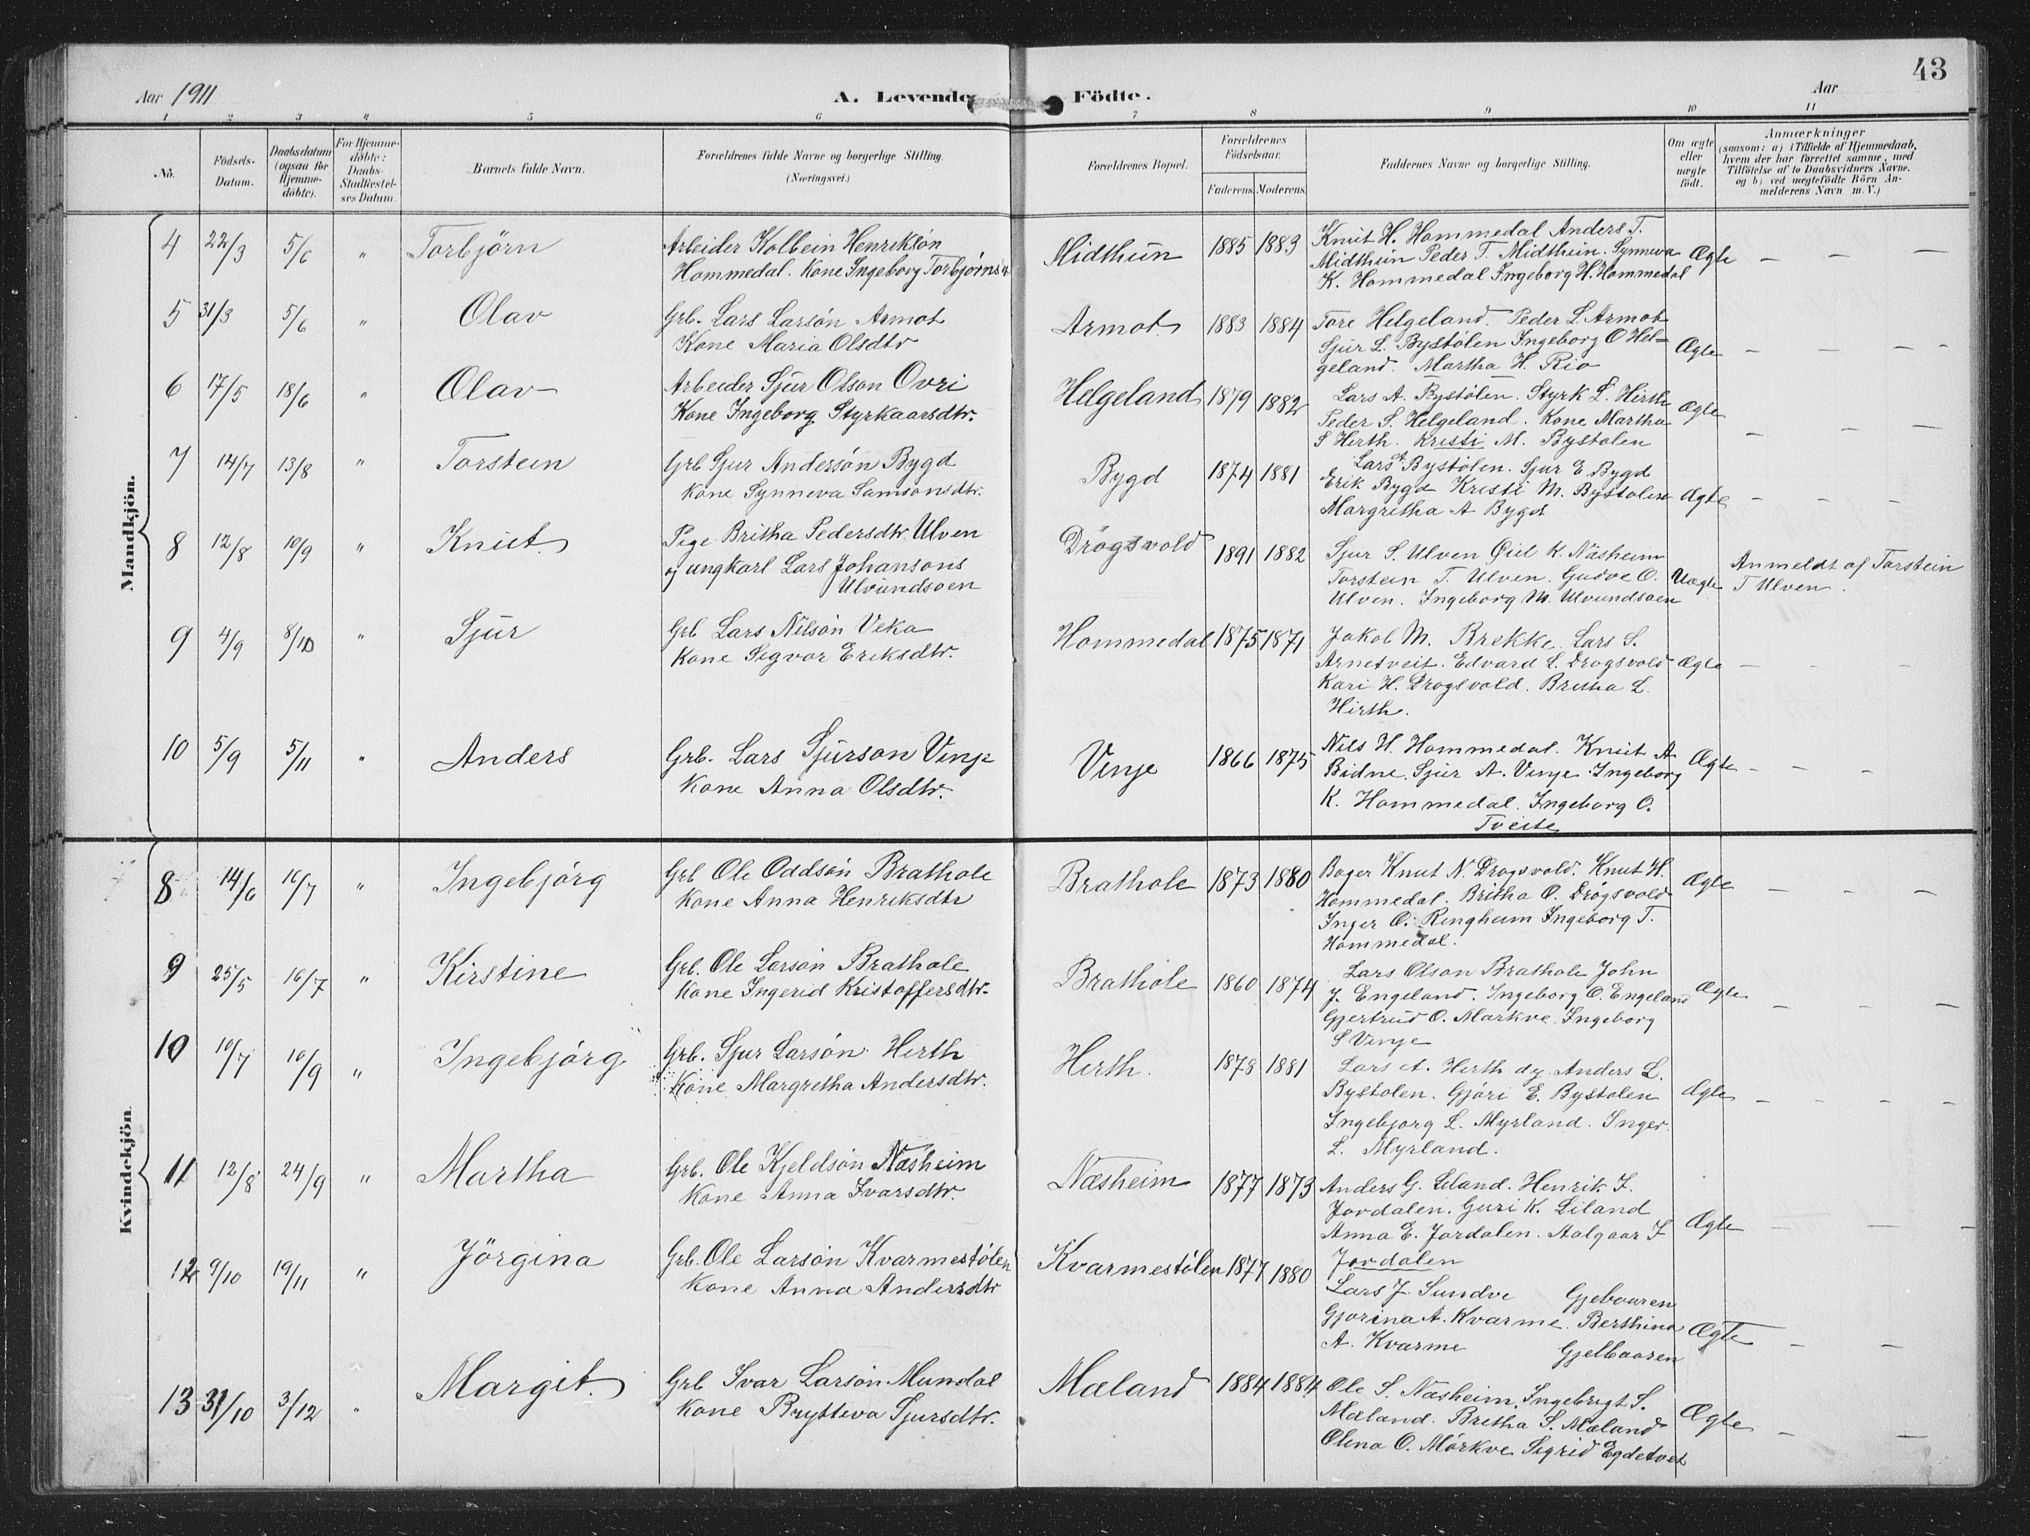 43
Aar 1911
A. Levende Födte.
Aar
1 2 3 4 5 6 7 8 9 10 11
No.
Födsels-Datum.
Daabsdatum (ogsaa for Hjemmedöbte).
For Hjemmedöbte: Daabs-Stadfæstelses Datum.
Barnets fulde Navn.
Forældrenes fulde Navne og borgerlige Stilling.
(Næringsvei.)
Forældrenes Bopæl.
Forældrenes Födselsaar.
Faderens. Moderens.
Faddernes Navne og borgerlige Stilling.
Om ægte eller uægte födt.
Anmærkninger
(saasom: a) i Tilfælde af Hjemmedaab,
hvem der har forrettet samme, med
Tilföielse af to Daabsvidners Navne.
og b) ved uægtefödte Börn Anmelderens Navn m. V.)
Mandkjön.
4 22/3 5/6 " Torbjörn
Arbeider Kolbein Henriksön
Hommedal. Kone Ingeborg Torbjørns
Midthun 1885 1883
Knut H. Hommedal Anders T.
Midthun Peder T. Midthun. Synneva
K. Hommedal Ingeborg H. Hommedal
Ægte — — —
5 31/3 5/6 " Olav
Grb. Lars Larsön Armot
Kone Maria Olsdtr
Armot 1883 1884
Tore Helgeland. Peder L. Armot
Sjur L. Bystølen Ingeborg O Hel=
geland. Martha H. Rio
Ægte — — — -
6 17/5 18/6 " Olav
Arbeider Sjur Olson Ovri
Kone Ingeborg Styrkaarsdtr.
Helgeland 1879 1882
Lars A. Bystölen. Styrk L. Hirth
Peder S. Helgeland. Kone Martha
S Hirth. Kristi M. Bystolen
Ægte — — —
7 14/7 13/8 " Torstein
Grb Sjur Andersön Bygd
Kone Synneva Samsonsdtr.
Bygd 1874 1881
Lars A Bystölen. Sjur E. Bygd
Erik Bygd Kristi M. Bystolen
Margritha A Bygd
Ægte — — —
8 12/8 10/9 " Knut.
Pige Britha Pedersdtr. Ulven
og ungkarl Lars Johansons
Ulvundsoen
Drögsvold 1891 1882
Sjur S. Ulven Giel K. Näsheim
Torstein T. Ulven. Gudve O.
Ulven. Ingeborg M. Ulvundsoen
Uægte
Anmeldt af Torstein
T Ulven.
9 4/9 8/10 " Sjur
Grb Lars Nilsön Veka
Kone Sigvor Eriksdtr.
Hommedal 1875 1871
Jakob M. Brekke. Lars S.
Arnetveit. Edvard L. Drogsvold
Kari H. Drogsvold. Britha L.
Hirth.
Ægte — — —
10 5/9 5/11 " Anders
Grb. Lars Sjurson Vinje
Kone Anna Olsdtr.
Vinje 1866 1875
Nils H. Hommedal. Knut A
Bidne. Sjur A. Vinje. Ingeborg
K. Hommedal. Ingeborg O.
Tveite
Ægte — — —
Kvindekjön.
8 14/6 16/7 " Ingebjörg
Grb Ole Oddsön Brathole
Kone Anna Henriksdtr
Brathole 1873 1880
Knut N. Drogsvold. Knut H.
Hommedal. Britha O. Drögsvold
Inger O. Ringheim Ingeborg T.
Hommedal.
Ægte — — —
9 25/5 16/7 " Kirstine
Grb. Ole Larsön Brathole
Kone Ingerid Kristoffersdtr.
Brathole 1860 1874
Lars Olson Brathole John
J. Engeland. Ingeborg O. Engeland
Gjertrud O. Markve. Ingeborg
S Vinje
Ægte — — —
10 10/7 10/9 " Ingebjörg
Grb. Sjur Larsön Hirth
Kone Margretha Andersdtr.
Hirth. 1878 1881
Lars A. Hirth og Anders L.
Bystolen. Gjöri E. Bystolen
Ingebjorg L. Myrland. Inger
L. Myrland.
Ægte — — — -
11 12/8 24/9 " Martha
Grb. Ole Kjeldsön Næsheim
Kone Anna Ivarsdtr.
Næsheim 1877 1873
Anders G. Liland. Henrik I.
Jordalen. Guri K. Liland
Anna E. Jordalen. Aalgaar I
Jordalen
Ægte — — —
12 9/10 19/11 " Jörgina
Grb. Ole Larsön Kvarmestølen
Kone Anna Andersdtr
Kvarmestølen 1877 1880
Lars J. Sundve
Gjorina A. Kvarme. Berthina
A. Kvarme
Ægte — — —
13 31/10 3/12 " Margit.
Grb Ivar Larsön Mundal
Kone Brytteva Sjursdtr.
Mæland 1884 1884
Ole S. Næsheim. Ingebrigt S.
Mæland. Britha S. Mæland
Olina O. Mörkve. Sigrid Egdetvet
Ægte — —